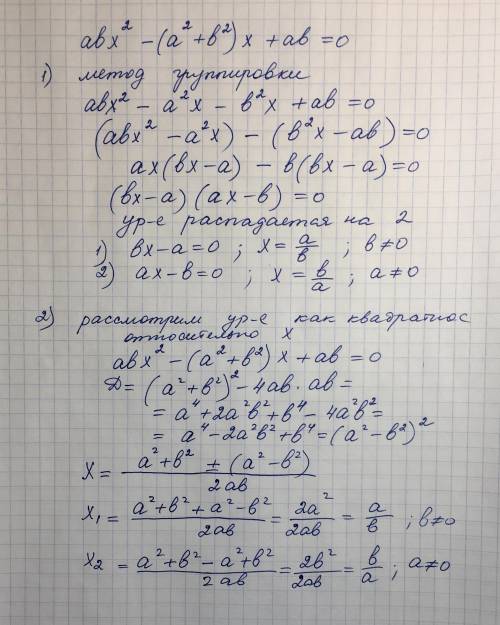 aвx² - (a² + в²) x + aв = 0
1) метод группировки
aвx² - a²x - в²x + aв = 0
(aвx² - a²x) - (в²x - aв) = 0
ax(вx - a) - в(вx - a) = 0
(вx - a) (ax - в) = 0
ур-е распадается на 2
1) вx - a = 0 ; x = a/в ; в ≠ 0
2) ax - в = 0 ; x = в/a ; a ≠ 0
2) рассмотрим ур-е как квадратное
относительно x
aвx² - (a² + в²) x + aв = 0
Д = (a² + в²)² - 4aв · aв =
= a⁴ + 2a²в² + в⁴ - 4a²в² =
= a⁴ - 2a²в² + в⁴ = (a² - в²)²
x = (a² + в² ± (a² - в²))/2aв
x₁ = (a² + в² + a² - в²)/2aв = 2a²/2aв = a/в ; в ≠ 0
x₂ = (a² + в² - a² + в²)/2aв = 2в²/2aв = в/a ; a ≠ 0